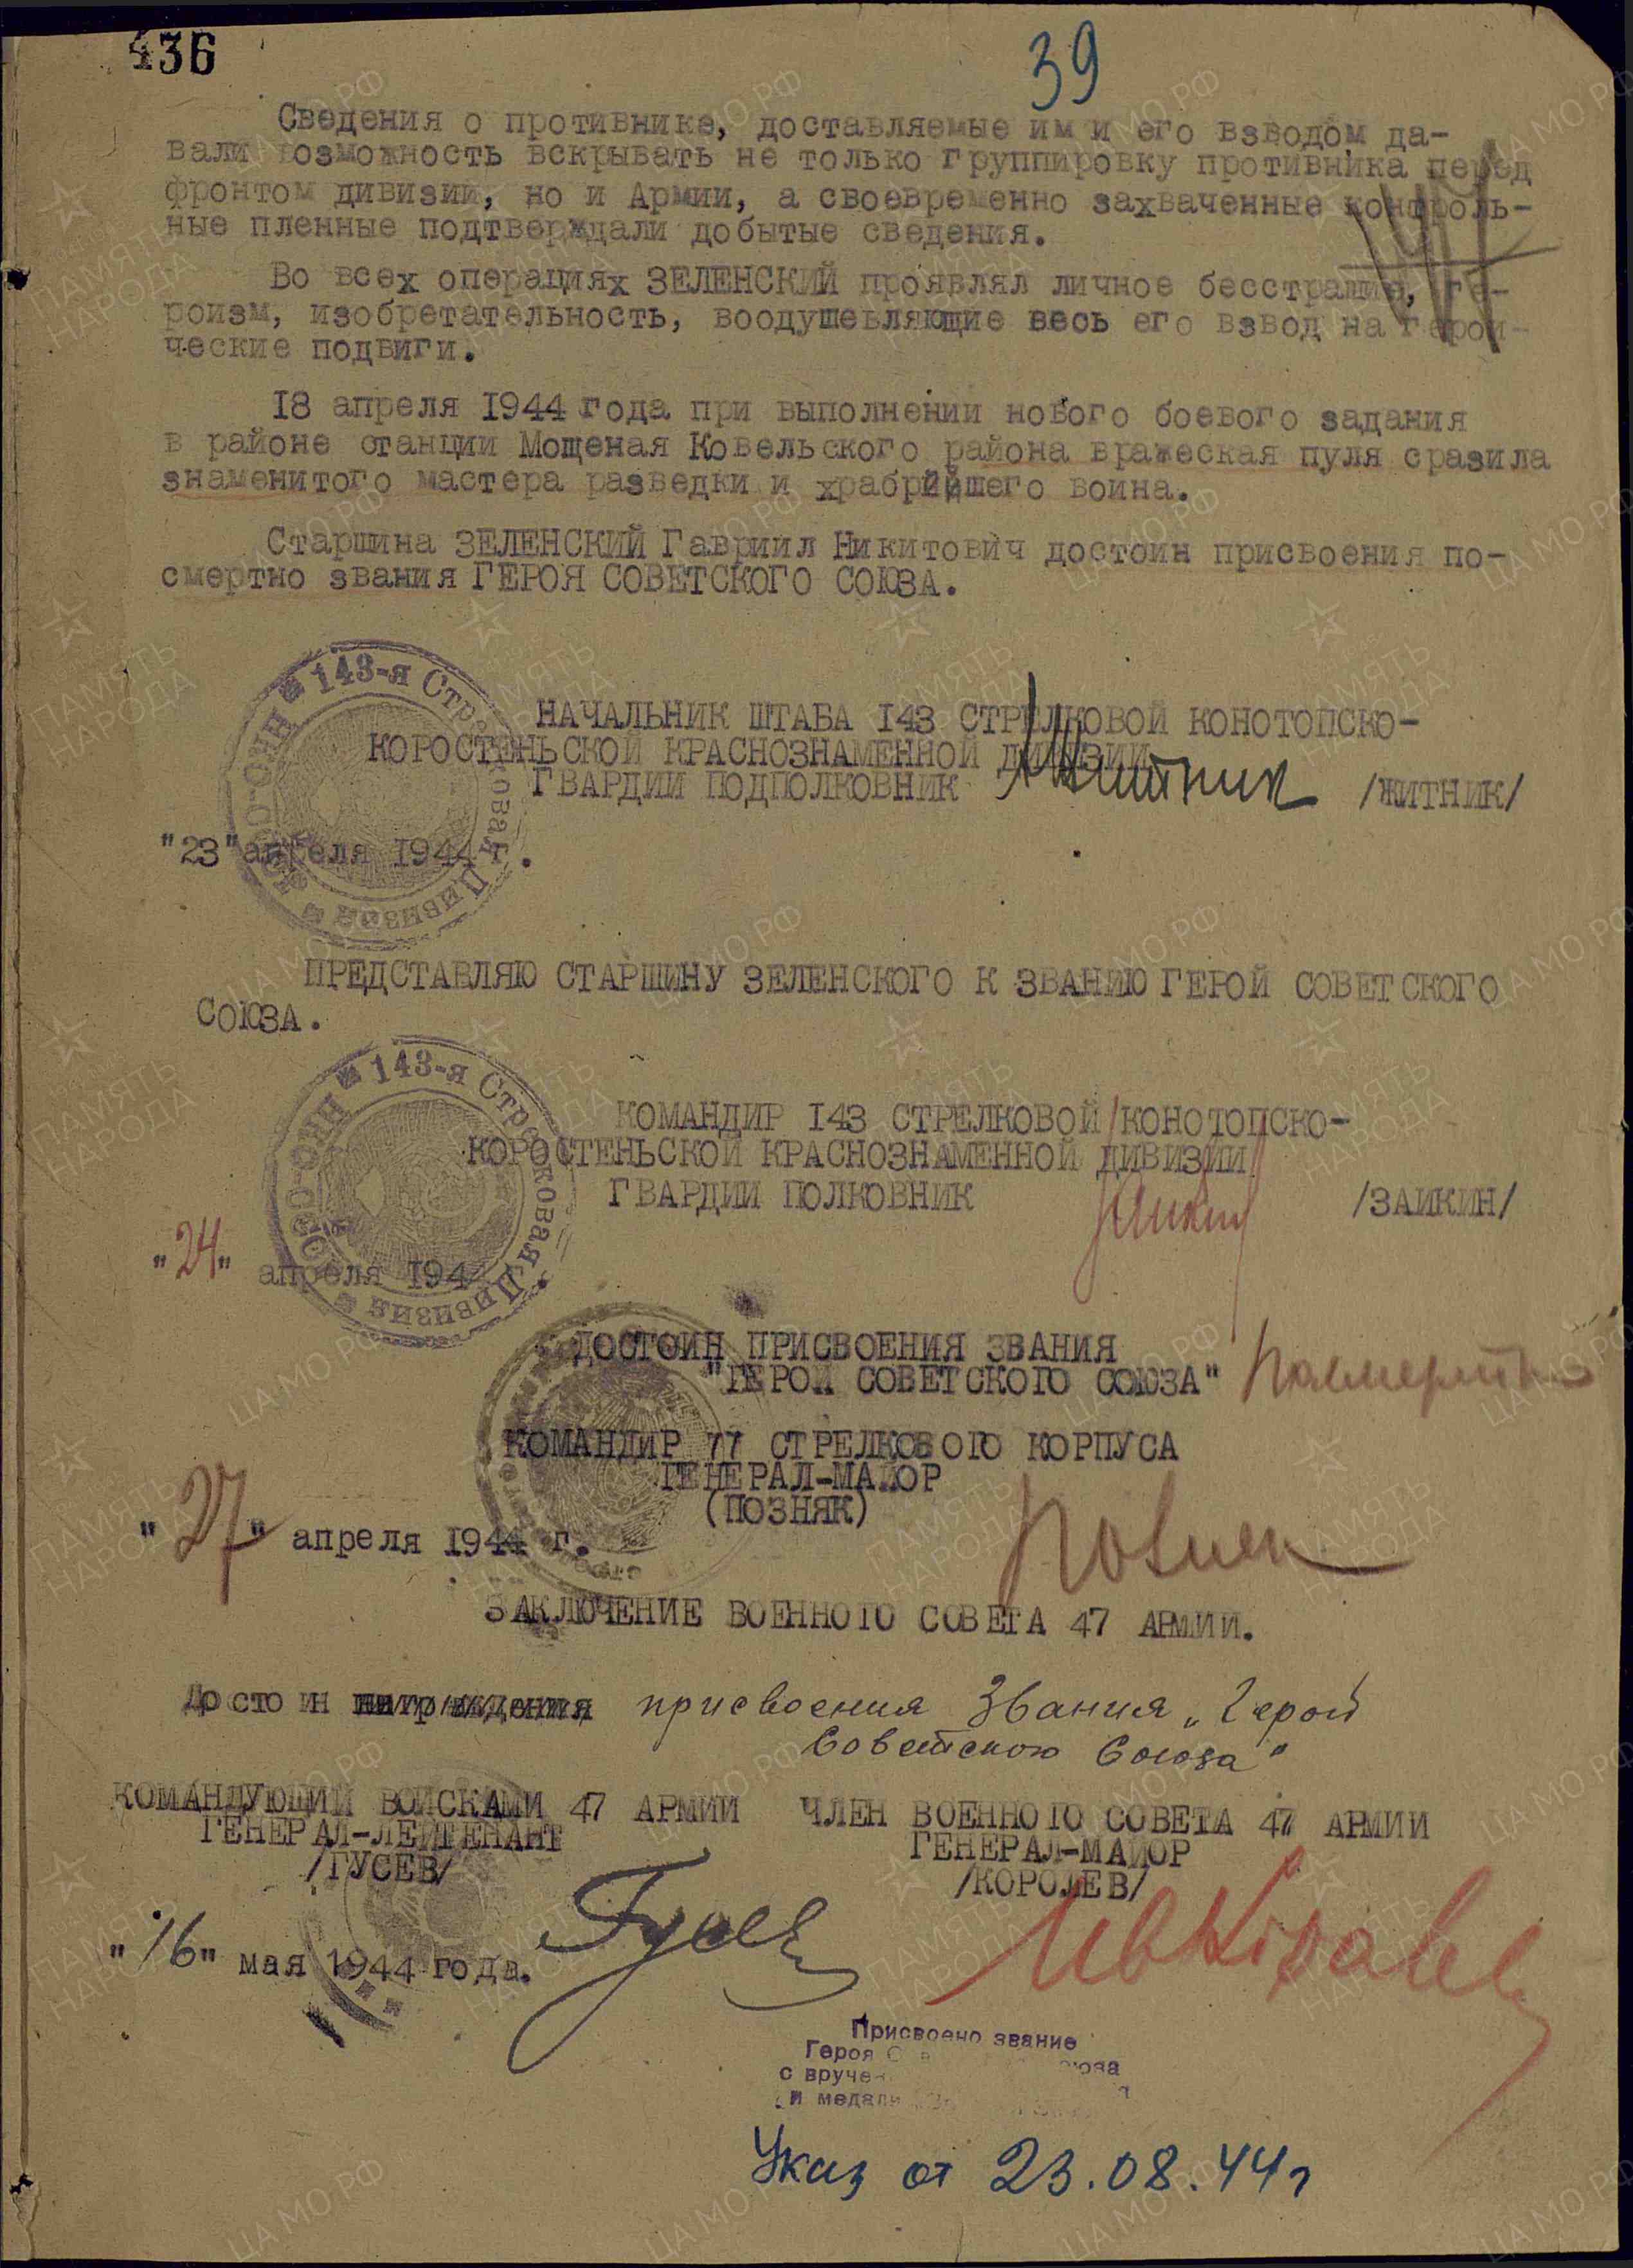 436
39
Сведения о противнике, доставляемые им и его взводом да-
вали возможность вскрывать не только группировку противника перед
фронтом дивизии, но и Армии, а своевременно захваченные контроль-
ные пленные подтверждали добытые сведения.
Во всех операциях ЗЕЛЕНСКИЙ проявлял личное бесстрашие, ге-
роизм, изобретательность, воодушевляющие весь его взвод на герои-
ческие подвиги.
18 апреля 1944 года при выполнении нового боевого задания
в районе станции Мощеная Ковельского района вражеская пуля сразила
знаменитого мастера разведки и храбрейшего воина.
Старшина ЗЕЛЕНСКИЙ Гавриил Никитович достоин присвоения по-
смертно звания ГЕРОЯ СОВЕТСКОГО СОЮЗА.
143-я Стрелковая Дивизия
НАЧАЛЬНИК ШТАБА 143 СТРЕЛКОВОЙ КОНОТОПСКО-
КОРОСТЕНЬСКОЙ КРАСНОЗНАМЕННОЙ ДИВИЗИИ
ГВАРДИИ ПОДПОЛКОВНИК Житник /ЖИТНИК/
"23" апреля 1944 г.
ПРЕДСТАВЛЯЮ СТАРШИНУ ЗЕЛЕНСКОГО К ЗВАНИЮ ГЕРОЙ СОВЕТСКОГО
СОЮЗА.
143-я Стрелковая Дивизия
КОМАНДИР 143 СТРЕЛКОВОЙ КОНОТОПСКО-
КОРОСТЕНЬСКОЙ КРАСНОЗНАМЕННОЙ ДИВИЗИИ
ГВАРДИИ ПОЛКОВНИК Заикин /ЗАИКИН/
"24" апреля 194
ДОСТОИН ПРИСВОЕНИЯ ЗВАНИЯ
"ГЕРОЙ СОВЕТСКОГО СОЮЗА" посмертно
КОМАНДИР 77 СТРЕЛКОВОГО КОРПУСА
ГЕНЕРАЛ-МАЙОР
(ПОЗНЯК) Позняк
"27" апреля 1944 г.
ЗАКЛЮЧЕНИЕ ВОЕННОГО СОВЕТА 47 АРМИИ.
Достоин награждения присвоения звания "Герой
Советского Союза"
КОМАНДУЮЩИЙ ВОЙСКАМИ 47 АРМИИ ЧЛЕН ВОЕННОГО СОВЕТА 47 АРМИИ
ГЕНЕРАЛ-ЛЕЙТЕНАНТ ГЕНЕРАЛ-МАЙОР
/ГУСЕВ/ /КОРОЛЕВ/
Гусев
"16" мая 1944 года.
Присвоено звание
Героя
с вруче
и медали
Указ от 23.08.44г
ПАМЯТЬ НАРОДА
ЦАМО РФ